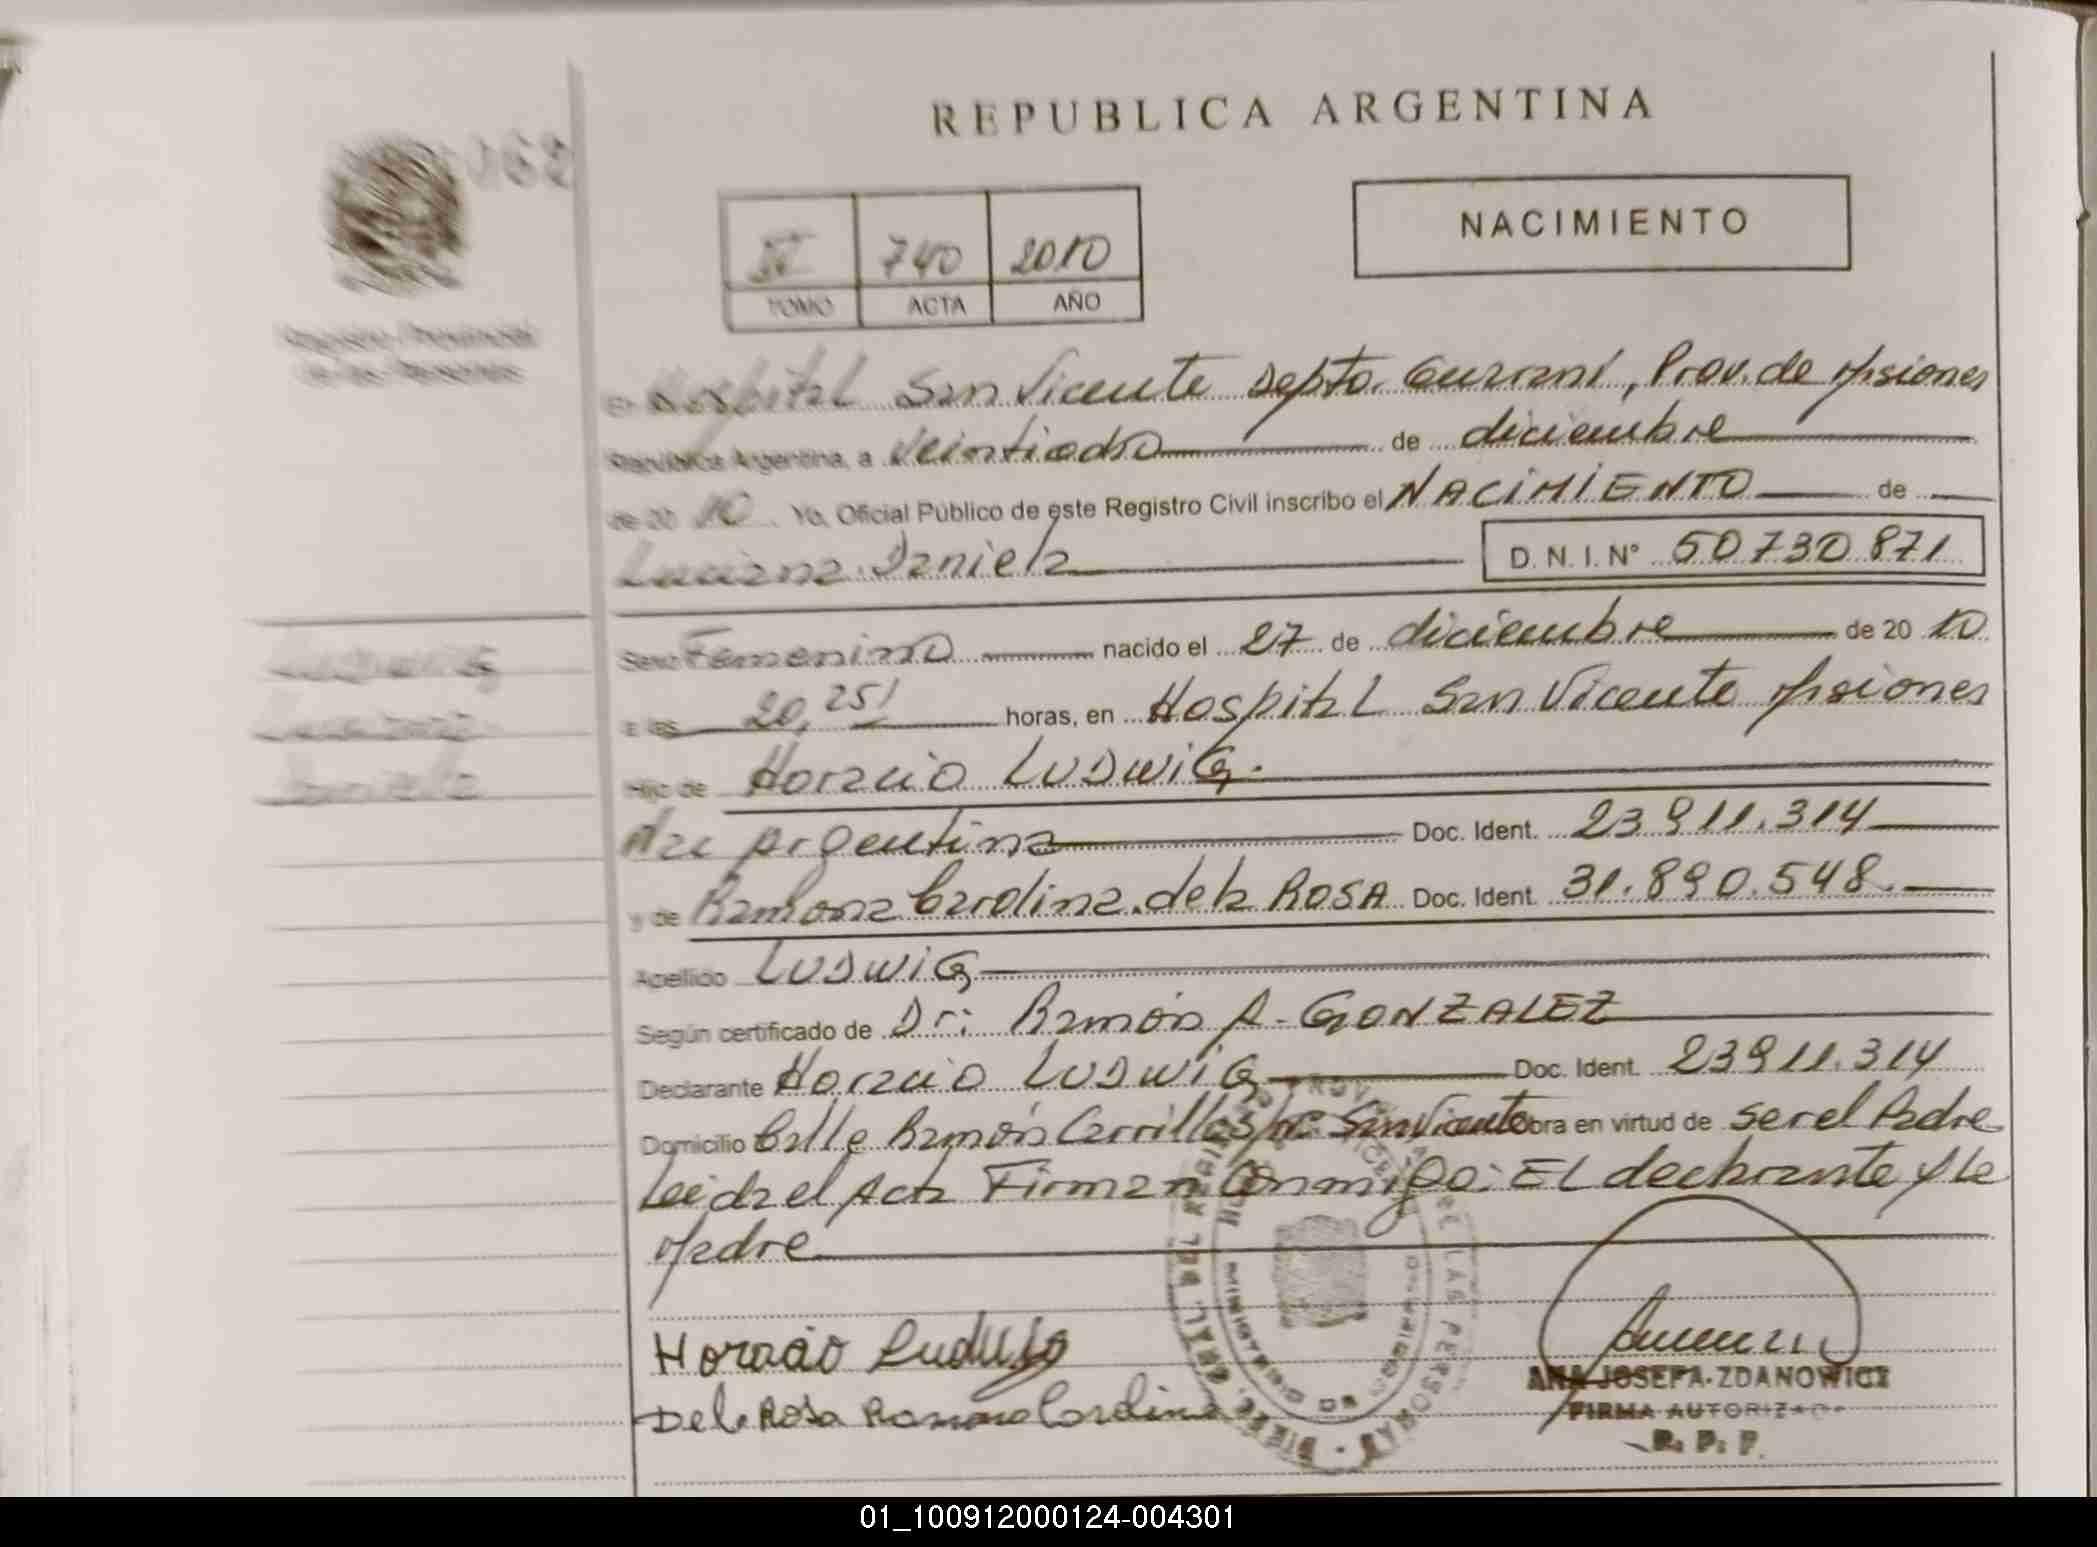 REPUBLICA ARGENTINA
162
IV 740 2010
TOMO ACTA AÑO
NACIMIENTO
Registro Provincial
de las Personas
En Hospital San Vicente Depto. Guaraní, Prov. de Misiones
República Argentina, a Veintiocho de diciembre
de 20 10. Yo, Oficial Público de este Registro Civil inscribo el NACIMIENTO de
Luciana Daniela D. N. I. N° 50730871
Sexo Femenino nacido el 27 de diciembre de 20 10
a las 20,25' horas, en Hospital San Vicente Misiones
Hijo de Horacio LUDWIG.
Nac Argentina Doc. Ident. 23911.314
y de Ramona Carolina de la ROSA Doc. Ident. 31.890.548.
Apellido LUDWIG
Según certificado de Dr: Ramón A. GONZALEZ
Declarante Horacio LUDWIG Doc. Ident. 23911.314
Domicilio Calle Ramón Carrillo San Vicente obra en virtud de ser el Padre
Leida el Acta Firman Conmigo: El declarante y la
Madre
LUDWIG
Luciana
Daniela
Horacio Ludwig
De la Rosa Ramona Carolina
ANA JOSEFA ZDANOWICZ
FIRMA AUTORIZADA
R. P. P.
01_100912000124-004301